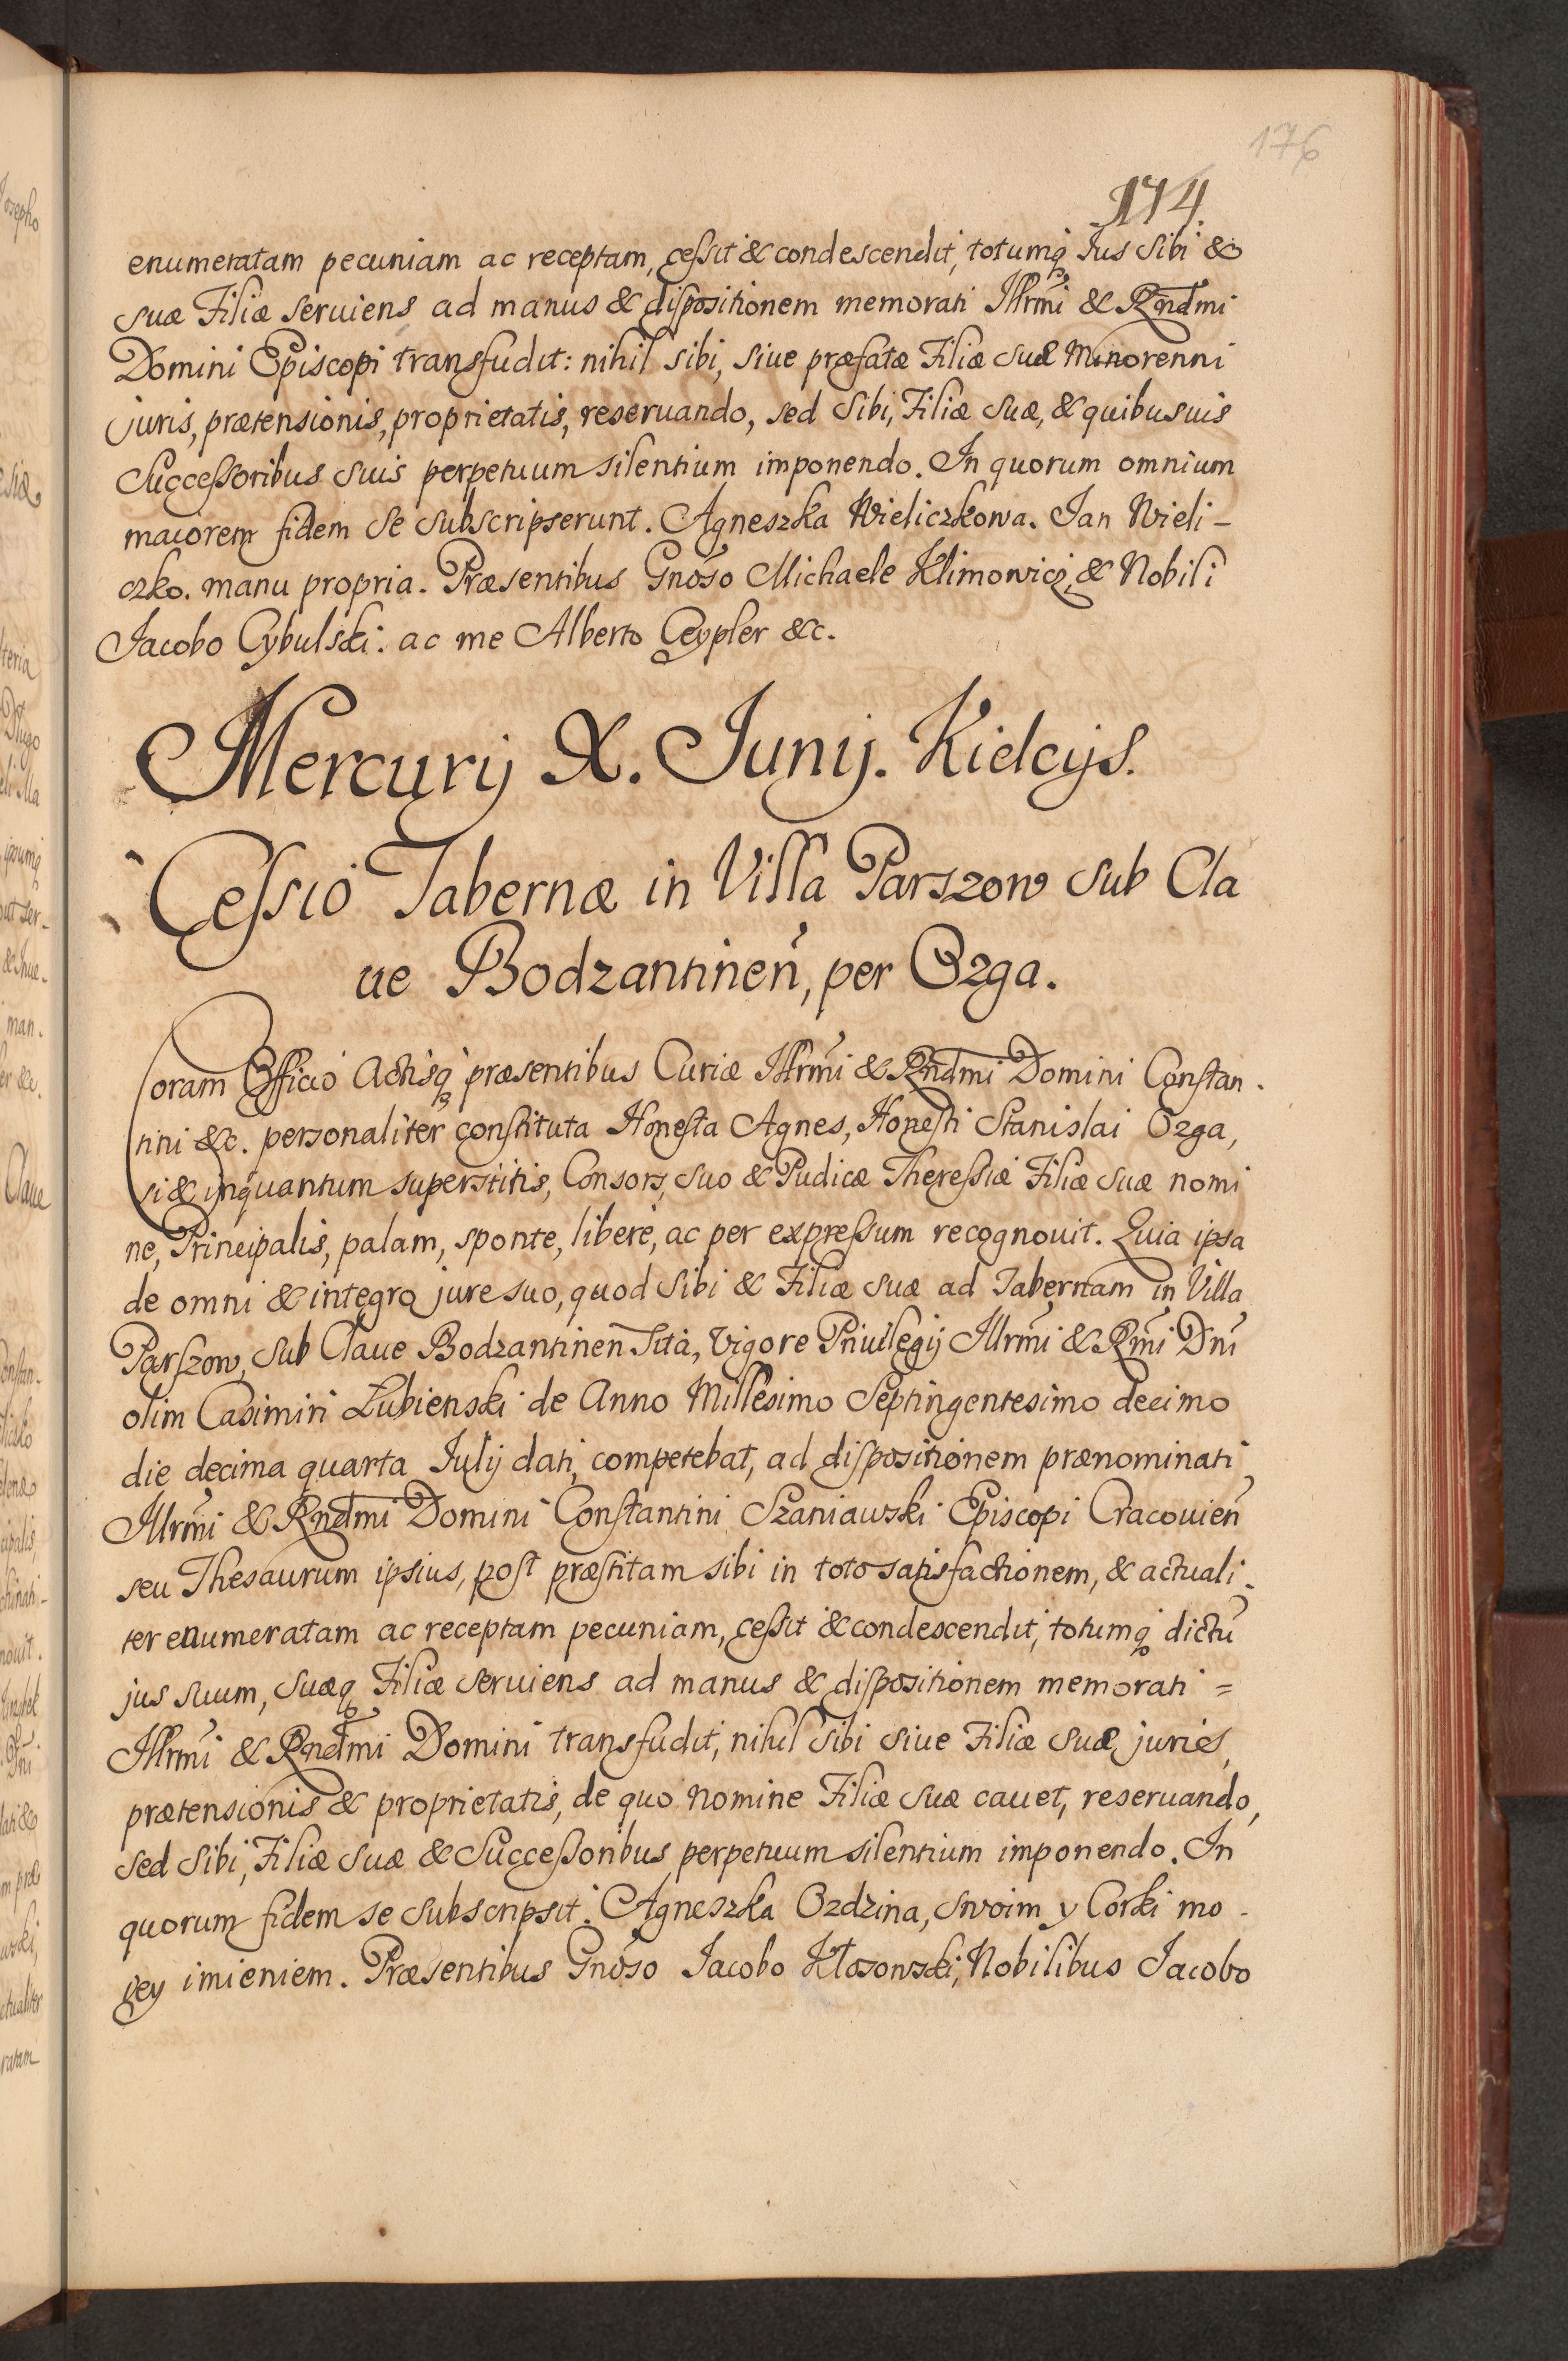 176
174.
enumeratam pecuniam ac receptam, cessit & condescendit, totumq́ Ius sibi &
suæ Filiæ seruiens ad manus & dispositionem memorati Illrmi & Rndmi
Domini Episcopi transfudit: nihil sibi, siue præfatæ Filiæ suæ Minorenni
juris, prætensionis, proprietatis, reseruando, sed sibi, Filiæ suæ, & quibusuis
Successoribus suis perpetuum silentium imponendo. In quorum omnium
maiorem fidem se subscripserunt. Agneszka Wieliczkowa. Jan Wieli-
czko. manu propria. Præsentibus Gnoso Michaele Klimowicz, & Nobili
Jacobo Cybulski: ac me Alberto Ceypler &c.
Mercurij X. Junij. Kielcijs.
Cessio Tabernæ in Villa Parszow sub Cla
ue Bodzantinen, per Ozga.
Coram Officio Actisq́ præsentibus Curiæ Illrmi & Rndmi Domini Constan-
tini &c. personaliter constituta Honesta Agnes, Honesti Stanislai Ozga,
si & inquantum superstitis, Consors, suo & Pudicæ Theressiæ Filiæ suæ nomi
ne, Principalis, palam, sponte, libere, ac per expressum recognouit. Quia ipsa
de omni & integro jure suo, quod sibi & Filiæ suæ ad Tabernam in Villa
Parszow, sub Claue Bodzantinen sita, Vigore Priuilegij Illrmi & Rmi Dni
olim Casimiri Łubienski de Anno Millesimo Septingentesimo decimo
die decima quarta Julij dati, competebat, ad dispositionem prænominati
Illrmi & Rndmi Domini Constantini Szaniawski Episcopi Cracouien
seu Thesaurum ipsius, post præstitam sibi in toto satisfactionem, & actuali-
ter enumeratam ac receptam pecuniam, cessit & condescendit, totumq́ dictū
jus suum, suæq́ Filiæ seruiens ad manus & dispositionem memorati =
Illrmi & Rndmi Domini transfudit, nihil sibi siue Filiæ suæ, juris,
prætensionis & proprietatis, de quo nomine Filiæ suæ cauet, reseruando,
sed sibi, Filiæ suæ & Successoribus perpetuum silentium imponendo. In
quorum fidem se subscripsit. Agneszka Ozdzina, swoim y Corki mo-
jey imieniem. Præsentibus Gnoso Jacobo Kłosowski, Nobilibus Jacobo